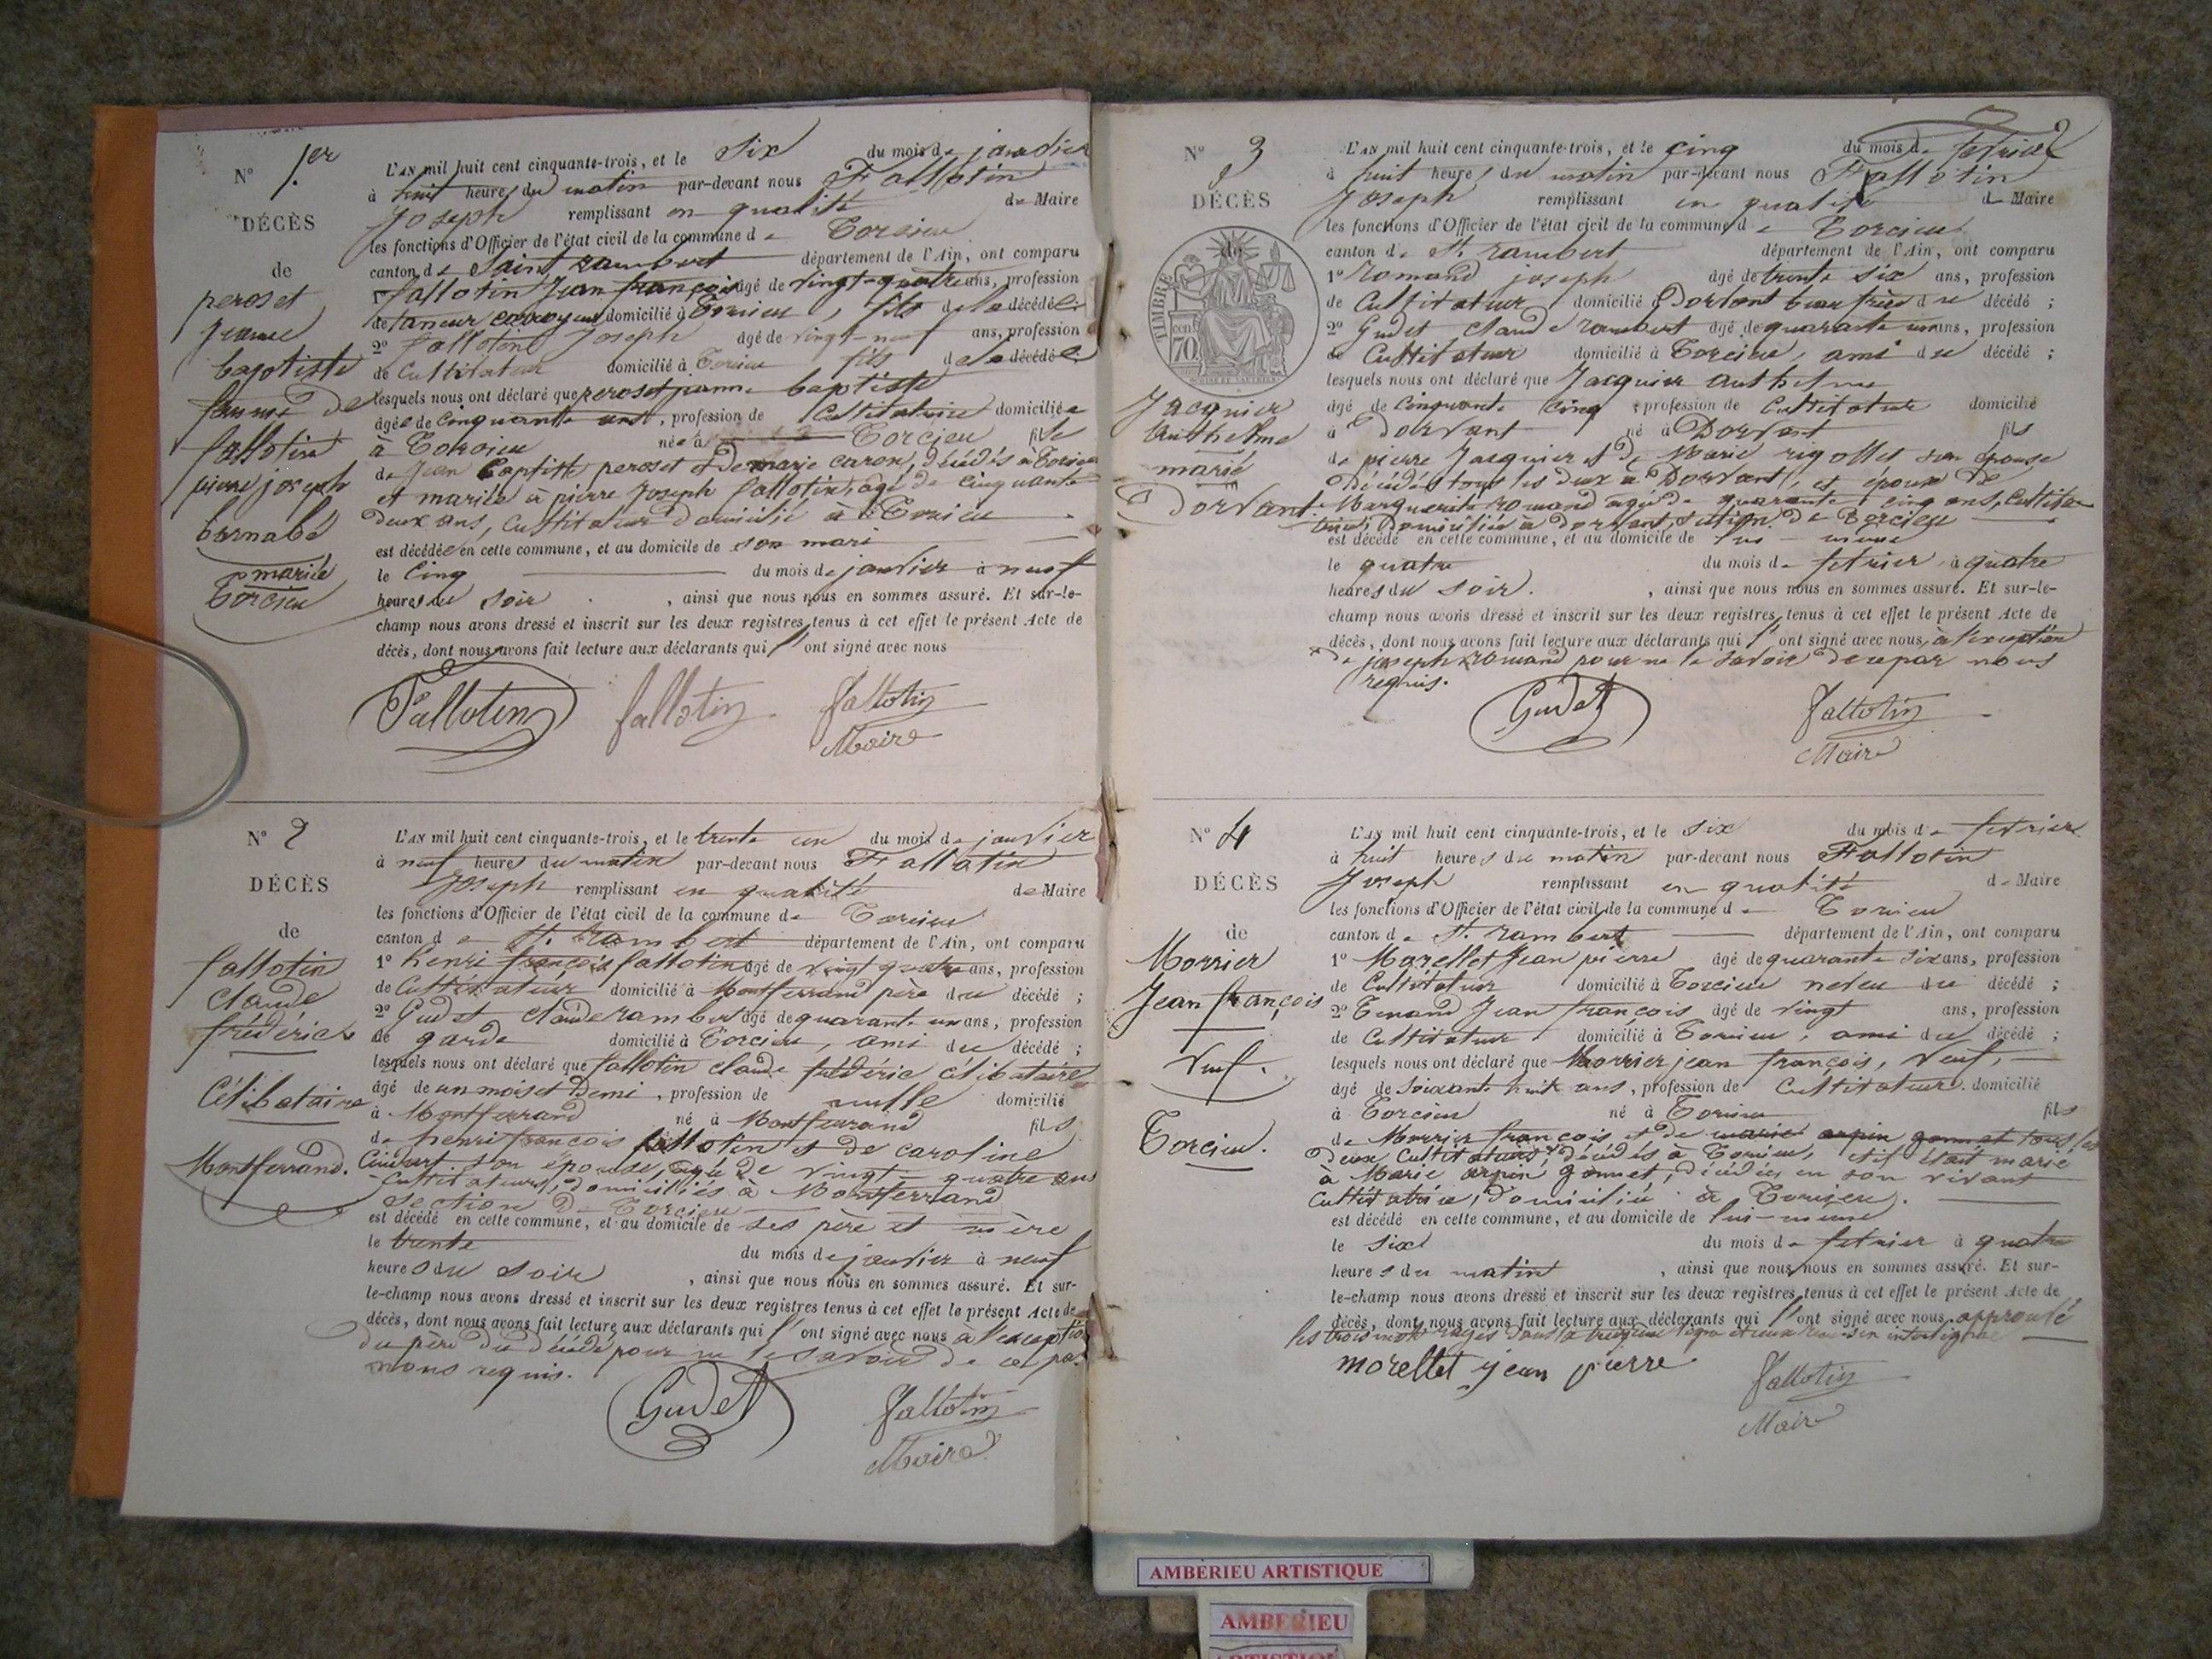 N° 1.er
DÉCÈS
de
peroset
jeanne
baptiste
femme de
fallotin
pierre joseph
barnabé
mariée
Torcieu
L'AN mil huit cent cinquante-trois, et le six du mois de janvier
à huit heures du matin par-devant nous Fallotin
Joseph remplissant en qualité de Maire
les fonctions d'Officier de l'état civil de la commune de Torcieu
canton de Saint rambert département de l'Ain, ont comparu
1° fallotin Jean françois âgé de vingt-quatre ans, profession
de tanneur corroyeur domicilié à Torcieu, fils de la décédée
2° fallotin Joseph âgé de vingt-neuf ans, profession
de Cultivateur domicilié à Torcieu fils de la décédée
lesquels nous ont déclaré que peroset jeanne baptiste
âgée de cinquante ans, profession de Cultivatrice domiciliée
à Torcieu née à Torcieu fille
de Jean Baptiste peroset et de marie caron, décédés à Torcieu
et mariée à pierre Joseph fallotin, âgé de cinquante
deux ans, Cultivateur domicilié à Torcieu
est décédée en cette commune, et au domicile de son mari
le cinq du mois de janvier à neuf
heures du soir, ainsi que nous nous en sommes assuré. Et sur-le-
champ nous avons dressé et inscrit sur les deux registres tenus à cet effet le présent Acte de
décès, dont nous avons fait lecture aux déclarants qui l' ont signé avec nous
Fallotin fallotin fallotin
Maire
N° 2
DÉCÈS
de
fallotin
claude
frédéric
Célibataire
Montferrand.
L'AN mil huit cent cinquante-trois, et le trente un du mois de janvier
à neuf heures du matin par-devant nous Fallotin
Joseph remplissant en qualité de Maire
les fonctions d'Officier de l'état civil de la commune de Torcieu
canton de St. rambert département de l'Ain, ont comparu
1° henri françois fallotin âgé de vingt quatre ans, profession
de Cultivateur domicilié à Montferrand père du décédé ;
2° Gudet claude rambert âgé de quarante un ans, profession
de garde domicilié à Torcieu, ami du décédé ;
lesquels nous ont déclaré que fallotin claude frédéric célibataire
âgé de un mois et demi, profession de nulle domicilié
à Montferrand né à Montferrand fils
de henri françois fallotin et de caroline
son épouse, âgée de vingt-quatre ans
Cultivateurs, domiciliés à Montferrand
section de Torcieu
est décédé en cette commune, et au domicile de ses père et mère
le trente du mois de janvier à neuf
heures du soir, ainsi que nous nous en sommes assuré. Et sur-
le-champ nous avons dressé et inscrit sur les deux registres tenus à cet effet le présent Acte de
décès, dont nous avons fait lecture aux déclarants qui l' ont signé avec nous à l'exception
du père du décédé pour ne le savoir de ce par
nous requis.
Gudet fallotin
Maire
2
N° 3
DÉCÈS
de
TIMBRE
70 cent
Jacquier
Anthelme
marié
Dorvant
L'AN mil huit cent cinquante-trois, et le cinq du mois de février
à huit heures du matin par-devant nous Fallotin
Joseph remplissant en qualité de Maire
les fonctions d'Officier de l'état civil de la commune de Torcieu
canton de St. rambert département de l'Ain, ont comparu
1° Romand joseph âgé de trente six ans, profession
de Cultivateur domicilié à Dorvant beau frère du décédé ;
2° Gudet claude rambert âgé de quarante un ans, profession
de Cultivateur domicilié à Torcieu, ami du décédé ;
lesquels nous ont déclaré que Jacquier anthelme
âgé de cinquante cinq, profession de Cultivateur domicilié
à Dorvant né à Dorvant fils
de pierre Jacquier et de Marie rigollet son épouse
décédés tous les deux à Dorvant, et époux de
Marguerite romand âgée de quarante cinq ans, Cultiva
trice, domiciliée à Dorvant, section de Torcieu
est décédé en cette commune, et au domicile de lui-même
le quatre du mois de février à quatre
heures du soir., ainsi que nous nous en sommes assuré. Et sur-le-
champ nous avons dressé et inscrit sur les deux registres tenus à cet effet le présent Acte de
décès, dont nous avons fait lecture aux déclarants qui l' ont signé avec nous, à l'exception
de joseph romand pour ne le savoir de ce par nous
requis.
Gudet fallotin
Maire
N° 4
DÉCÈS
de
Morrier
Jean françois
Veuf.
Torcieu.
L'AN mil huit cent cinquante-trois, et le six du mois de février
à huit heures du matin par-devant nous Fallotin
Joseph remplissant en qualité de Maire
les fonctions d'Officier de l'état civil de la commune de Torcieu
canton de St. rambert département de l'Ain, ont comparu
1° Morellet Jean pierre âgé de quarante six ans, profession
de Cultivateur domicilié à Torcieu neveu du décédé ;
2° Tenand Jean françois âgé de vingt ans, profession
de Cultivateur domicilié à Torcieu, ami du décédé ;
lesquels nous ont déclaré que Morrier jean françois, veuf,
âgé de soixante huit ans, profession de Cultivateur domicilié
à Torcieu né à Torcieu fils
de Morrier françois et de marie arpin gonnet tous les
deux Cultivateurs, décédés à Torcieu, et il était marié
à Marie arpin gonnet, décédée en son vivant
Cultivatrice, domiciliée à Torcieu.
est décédé en cette commune, et au domicile de lui-même
le six du mois de février à quatre
heures du matin, ainsi que nous nous en sommes assuré. Et sur-
le-champ nous avons dressé et inscrit sur les deux registres tenus à cet effet le présent Acte de
décès, dont nous avons fait lecture aux déclarants qui l' ont signé avec nous approuvé
les trois mots rayés dans la treizième ligne en interligne
morellet jean pierre fallotin
Maire
AMBERIEU ARTISTIQUE
AMBERIEU
ARTISTIQUE